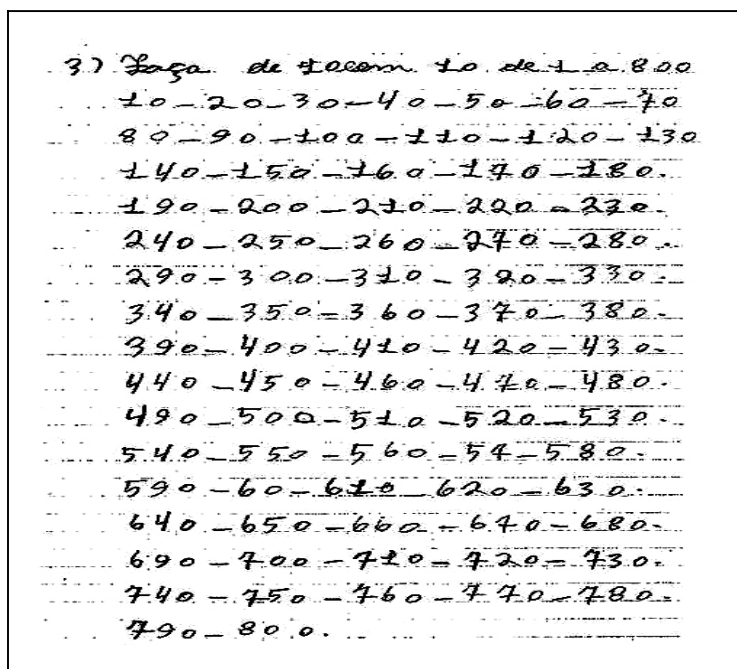 3) Faça de 10 em 10 de 1 a 800
10-20-30-40-50-60-70
80-90-100-110-120-130
140-150-160-170-180.
190-200-210-220-230.
240-250-260-270-280.
290-300-310-320-330.
340-350-360-370-380.
390-400-410-420-430.
440-450-460-470-480.
490-500-510-520-530.
540-550-560-57-580.
590-60-610-620-630.
640-650-660-670-680.
690-700-710-720-730.
740-750-760-770-780.
790-800.